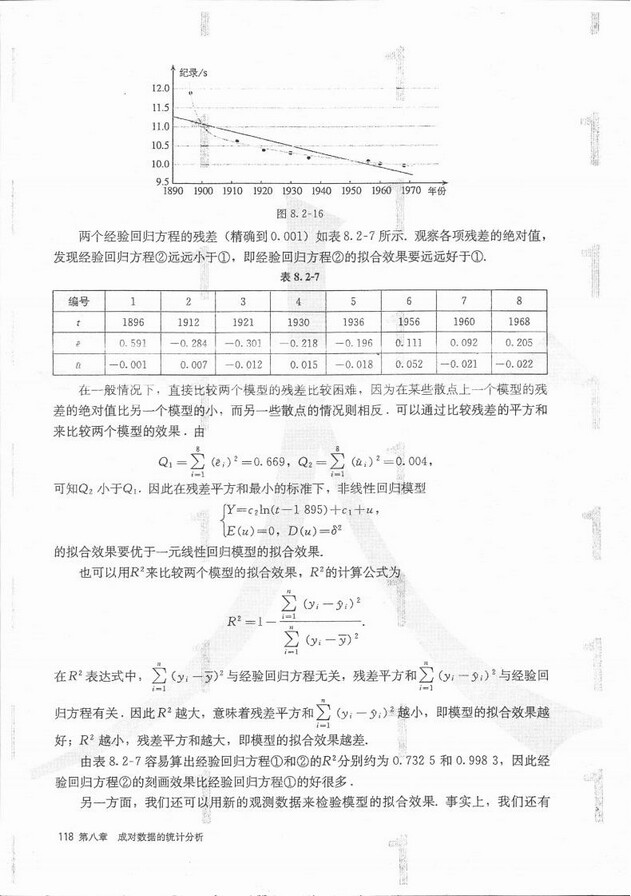 纪录/s
12.0
11.5
11.0
10.5
10.0
9.5
1890 1900 1910 1920 1930 1940 1950 1960 1970 年份
图 8.2-16
两个经验回归方程的残差（精确到0.001）如表8.2-7所示. 观察各项残差的绝对值,
发现经验回归方程②远远小于①, 即经验回归方程②的拟合效果要远远好于①.
表 8.2-7
编号 1 2 3 4 5 6 7 8
t 1896 1912 1921 1930 1936 1956 1960 1968
ê 0.591 −0.284 −0.301 −0.218 −0.196 0.111 0.092 0.205
û −0.001 0.007 −0.012 0.015 −0.018 0.052 −0.021 −0.022
在一般情况下, 直接比较两个模型的残差比较困难, 因为在某些散点上一个模型的残
差的绝对值比另一个模型的小, 而另一些散点的情况则相反. 可以通过比较残差的平方和
来比较两个模型的效果. 由
Q₁=∑_{i=1}^{8}(ê_i)²=0.669, Q₂=∑_{i=1}^{8}(û_i)²=0.004,
可知Q₂小于Q₁. 因此在残差平方和最小的标准下, 非线性回归模型
{Y=c₂ln(t−1 895)+c₁+u,
E(u)=0, D(u)=δ²
的拟合效果要优于一元线性回归模型的拟合效果.
也可以用R²来比较两个模型的拟合效果, R²的计算公式为
R²=1−∑_{i=1}^{n}(y_i−ŷ_i)²/∑_{i=1}^{n}(y_i−ȳ)².
在R²表达式中, ∑_{i=1}^{n}(y_i−ȳ)²与经验回归方程无关, 残差平方和∑_{i=1}^{n}(y_i−ŷ_i)²与经验回
归方程有关. 因此R²越大, 意味着残差平方和∑_{i=1}^{n}(y_i−ŷ_i)²越小, 即模型的拟合效果越
好; R²越小, 残差平方和越大, 即模型的拟合效果越差.
由表8.2-7容易算出经验回归方程①和②的R²分别约为0.732 5和0.998 3, 因此经
验回归方程②的刻画效果比经验回归方程①的好很多.
另一方面, 我们还可以用新的观测数据来检验模型的拟合效果. 事实上, 我们还有
118 第八章 成对数据的统计分析